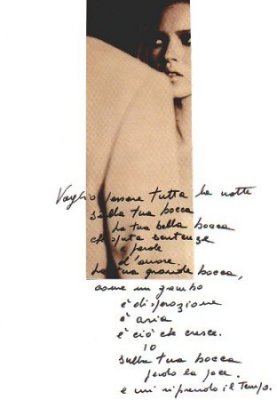 Voglio essere tutta la notte
sulla tua bocca
la tua bella bocca
che sputa sentenze
e perle
d'amore.
La tua grande bocca,
come un gambo
è disperazione
è aria
è ciò che cresce.
IO
sulla tua bocca
perdo la pace.
e mi riprendo il Tempo.